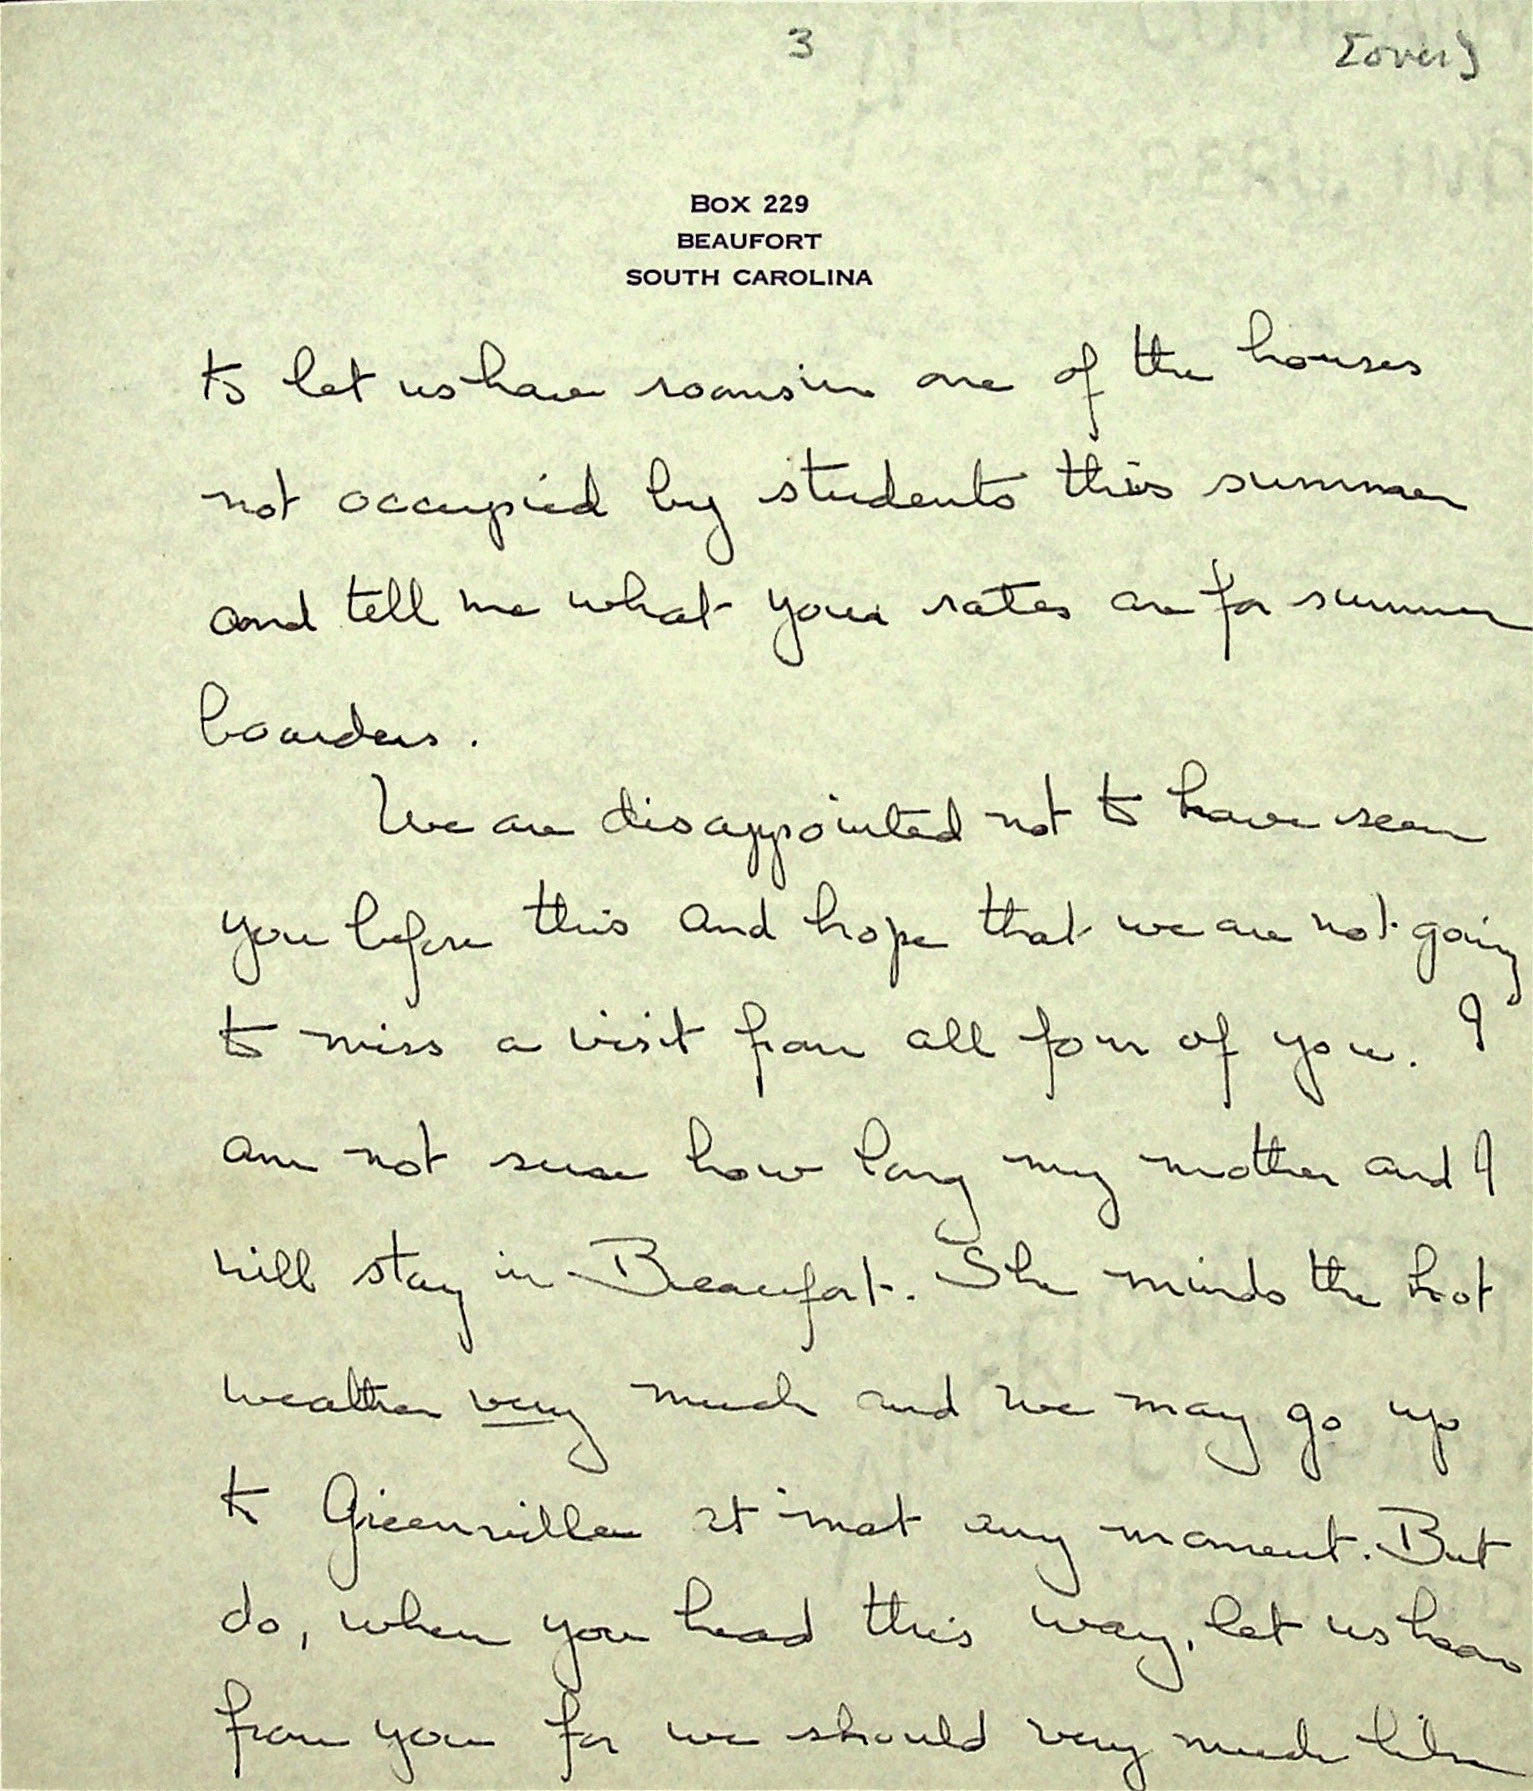 3
[over]
BOX 229
BEAUFORT
SOUTH CAROLINA
to let us have rooms in one of the houses
not occupied by students this summer
and tell me what your rates are for summer
boarders.
We are disappointed not to have seen
you before this and hope that we are not going
to miss a visit from all four of you. I
am not sure how long my mother and I
will stay in Beaufort. She minds the hot
weather very much and we may go up
to Greenville at most any moment. But
do, when you head this way, let us hear
from you for we should very much like